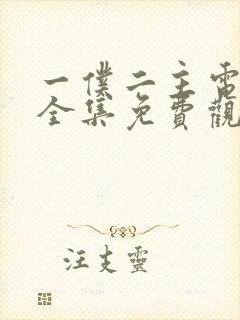 一僕二主電
全集免費觀
汪支靈